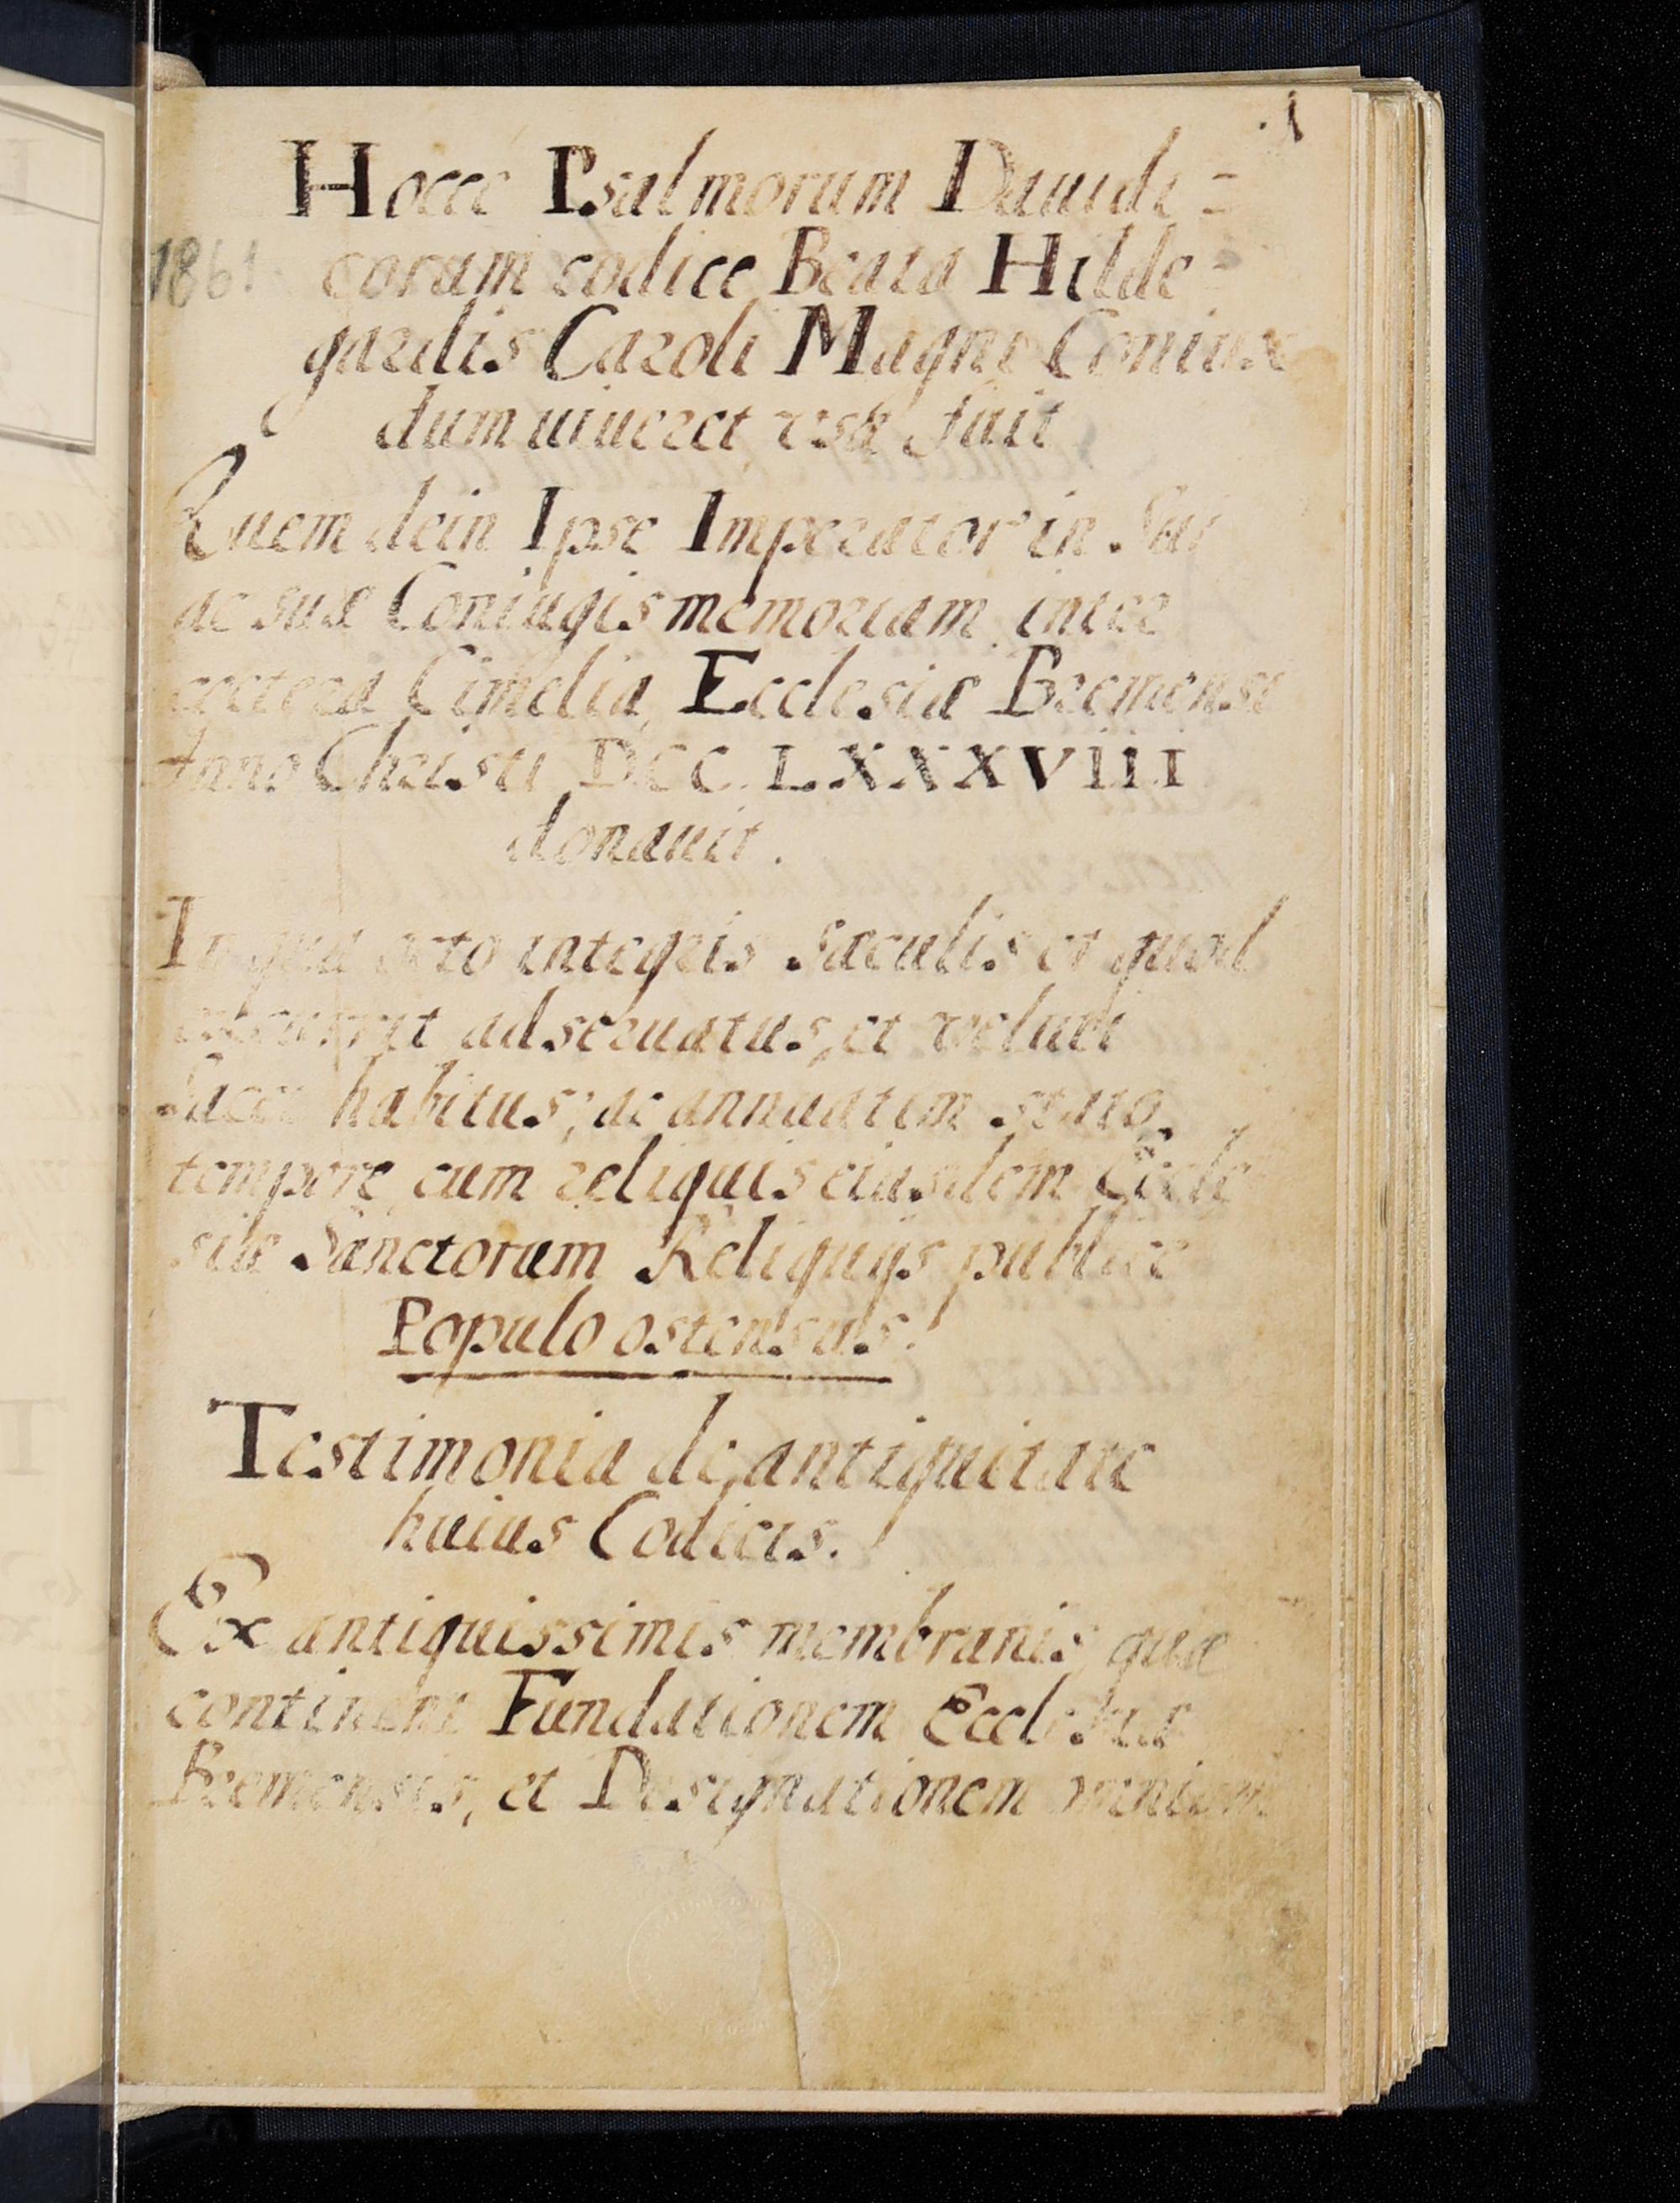 .1
Hocce Psalmorum Dauidi=
1861 corum codice Beata Hilde=
gardis Caroli Magni Coniux
dum uiueret, vsa fuit
Quem dein Ipse Imperator in Sui
ac suæ Coniugis memoriam inter
coetera Cimelia, Ecclesiæ Bremensi
Anno Christi DCC. LXXXVIIII
donauit.
In qua octo integris sæculis et quod
adseruatus, et veluti
Sacer habitus; ac annuatim stato
tempore, cum reliquis eiusdem Eccle
siæ Sanctorum Reliquijs publice
Populo ostensus.
Testimonia de antiquitate
huius Codicis.
Ex antiquissimis membranis quæ
continent Fundationem Ecclesiæ
Bremensis, et Designationem omnium